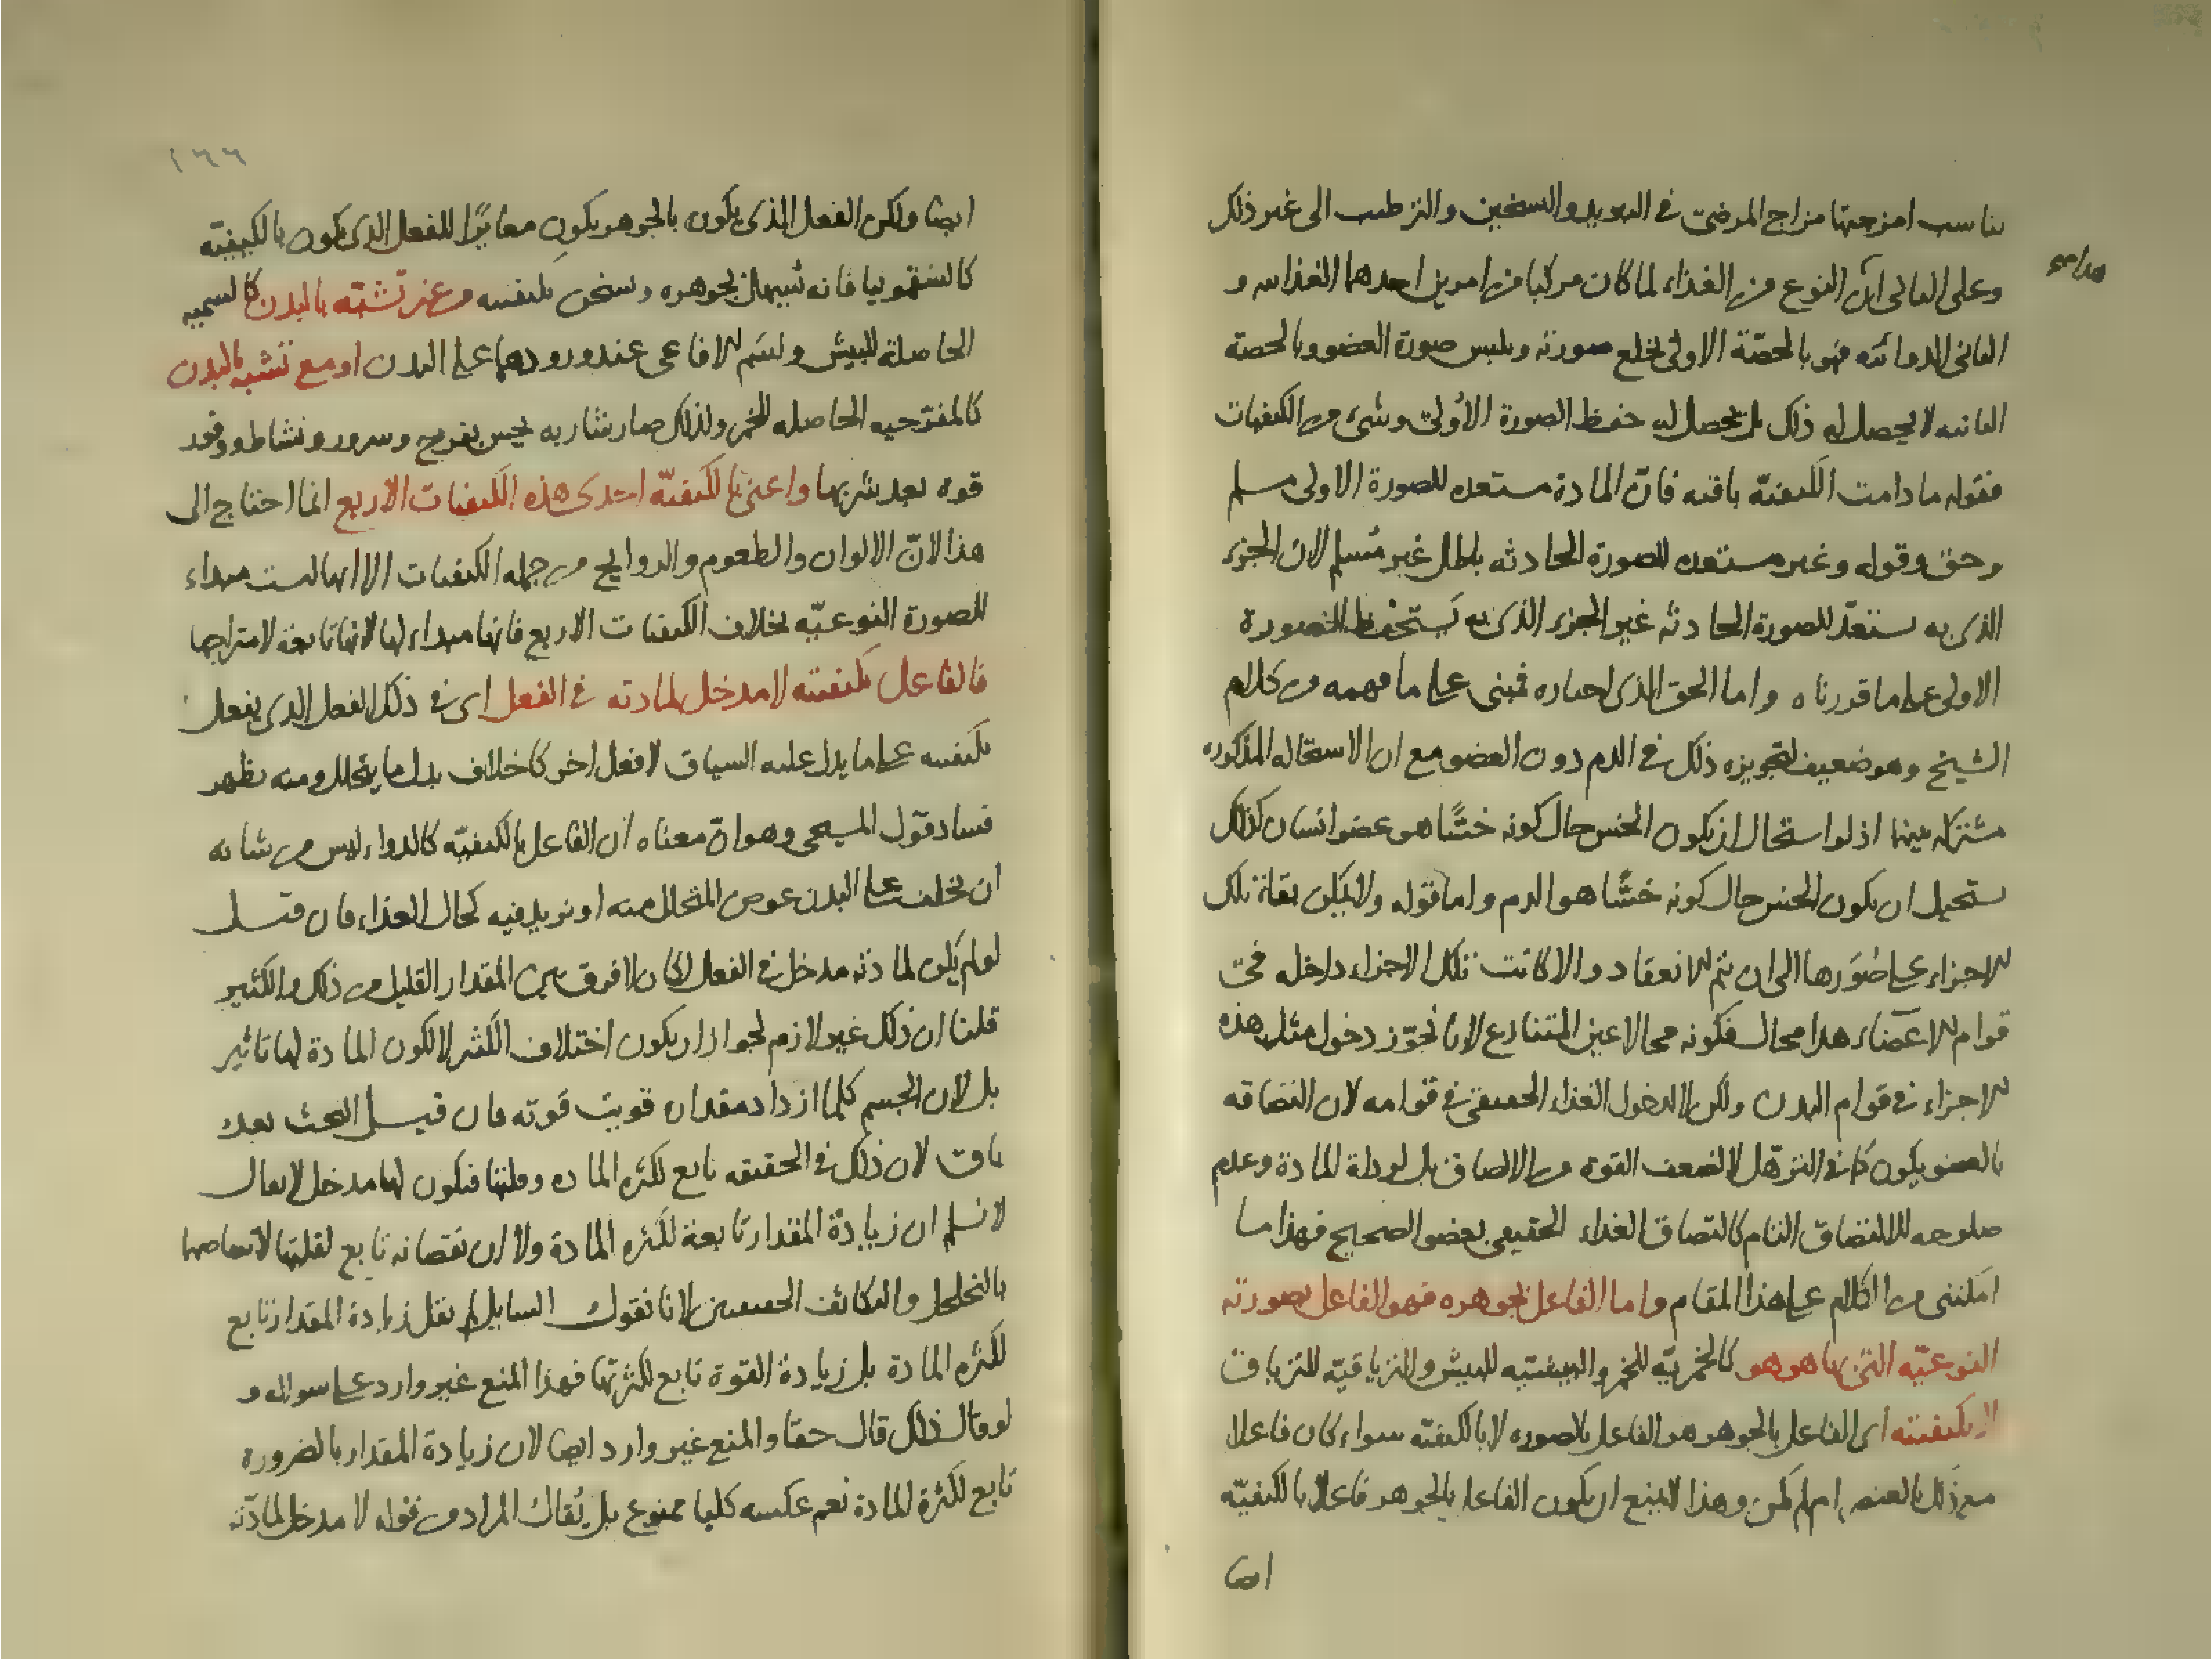 يناسب امزجتها مزاج المرضى في التبريد والتسخين والترطيب الى غير ذلك
وعلى الثاني ان النوع من الغذاء لما كان مركبا من امرين احدهما الغذائيه و
الثاني الدوائيه فهو بالحصّة الاولى يخلع صورته ويلبس صورة العضو وبالحصة
الثانيه لا يحصل له ذلك بل يحصل له حفظ الصورة الاولى وشئ من الكيفيات
فقوله ما دامت الكيفيّة باقيه فانّ المادة مستعده للصورة الاولى مسلم
وحق وقوله وغير مستعده للصورة الحادثه باطل غير مُسلم لان الجزء
الذى به يستعدّ للصورة الحادثه غير الجزء الذى به يستحفظ الصورة
الاولى على ما قررناه واما الحق الذى اختاره فمبنى على ما فهمه من كلام
الشيخ وهو ضعيف لتجويزه ذلك في الدم دون العضو مع ان الاستحاله المذكوره
مشتركه بينهما اذ لو استحال ان يكون الخس حال كونه خسًّا هو عضو انسان كذلك
يستحيل ان يكون الخس حال كونه خسًّا هو الدم واما قوله ولا يمكن بقاء تلك
الاجزاء على صُوَرها الى ان يتم الانعقاد والا كانت تلك الاجزاء داخله في
قوام الاعضاء هذا محال فكونه محالا عين المتنازع لانا نجوّز دخول مثل هذه
الاجزاء في قوام البدن ولكن لا كدخول الغذاء الحقيقي في قوامه لان التصاقه
بالعضو يكون كما في الترهّل لا لضعف القوه من الالصاق بل لرداءة المادة وعدم
صلوحه للالتصاق التام كالتصاق الغذاء الحقيقي بعضو الصحيح فهذا ما
امكننى من الكلام على هذا المقام واما الفاعل بجوهره فهو الفاعل بصورته
النوعيّه التى بها هو هو كالخمريّه للخمر والبيشيّه للبيش والترياقيّه للترياق
لا بكيفيته اى الفاعل بالجوهر هو الفاعل بالصوره لا بالكيفيّه سواء كان فاعلا
مع ذلك بالعنصر ام لم يكن وهذا لا يمنع ان يكون الفاعل بالجوهر فاعلا بالكيفيّه
ايضا
١٦٦
ايضا ولكن الفعل الذى يكون بالجوهر يكون مغايرًا للفعل الذى يكون بالكيفيّه
كالسقمونيا فانه يسهل بجوهره ويسخن بكيفيته من غير تشبّه بالبدن كالسميه
الحاصلة للبيش ولسَم الافاعى عند ورودهما على البدن او مع تشبه بالبدن
كالمفرحيه الحاصله للخمر ولذلك صار شاربه يحس بفرح وسرور ونشاط ووفور
قوه بعد شربها واعنى بالكيفيّه احدى هذه الكيفيات الاربع انما احتاج الى
هذا لانّ الالوان والطعوم والروايح من جمله الكيفيات الا انها ليست مبداء
للصورة النوعيّه بخلاف الكيفيات الاربع فانها مبداء لها لانها تابعه لامتزاجها
فالفاعل بكيفيته لا مدخل لمادته في الفعل اى في ذلك الفعل الذى يفعل
بكيفيته على ما يدل عليه السياق لا فعل اخر كاخلاف بدل ما يتحلل ومنه يظهر
فساد قول المسيحى وهو انّ معناه ان الفاعل بالكيفيّه كالدواء ليس من شانه
ان يخلف على البدن عوض المتحلل منه او يزيد فيه كحال الغذاء فان قيل
لو لم يكن لمادته مدخل في الفعل لكان لا فرق بين المقدار القليل من ذلك والكثير
قلنا ان ذلك غير لازم لجواز ان يكون اختلاف الكثر لا لكون المادة لها تاثير
بل لان الجسم كلما ازداد مقداره قويت قوته فان قيل البحث بعد
باق لان ذلك في الحقيقه تابع لكثره الماده وقلتها فيكون لها مدخل لا يقال
لا نسلم ان زيادة المقدار تابعة لكثره المادة ولا ان نقصانه تابع لقلتها لانتقاضهما
بالتخلخل والتكاثف الحقيقيين لانا نقول السايل لم يقل زيادة المقدار تابع
لكثره المادة بل زيادة القوة تابع لكثرتها فهذا المنع غير وارد على سواله و
لو قال ذلك قال حقا والمنع غير وارد ايضا لان زيادة المقدار بالضروره
تابع لكثرة المادة نعم عكسه كليا ممنوع بل يُقال المراد من قوله لا مدخل لمادّته